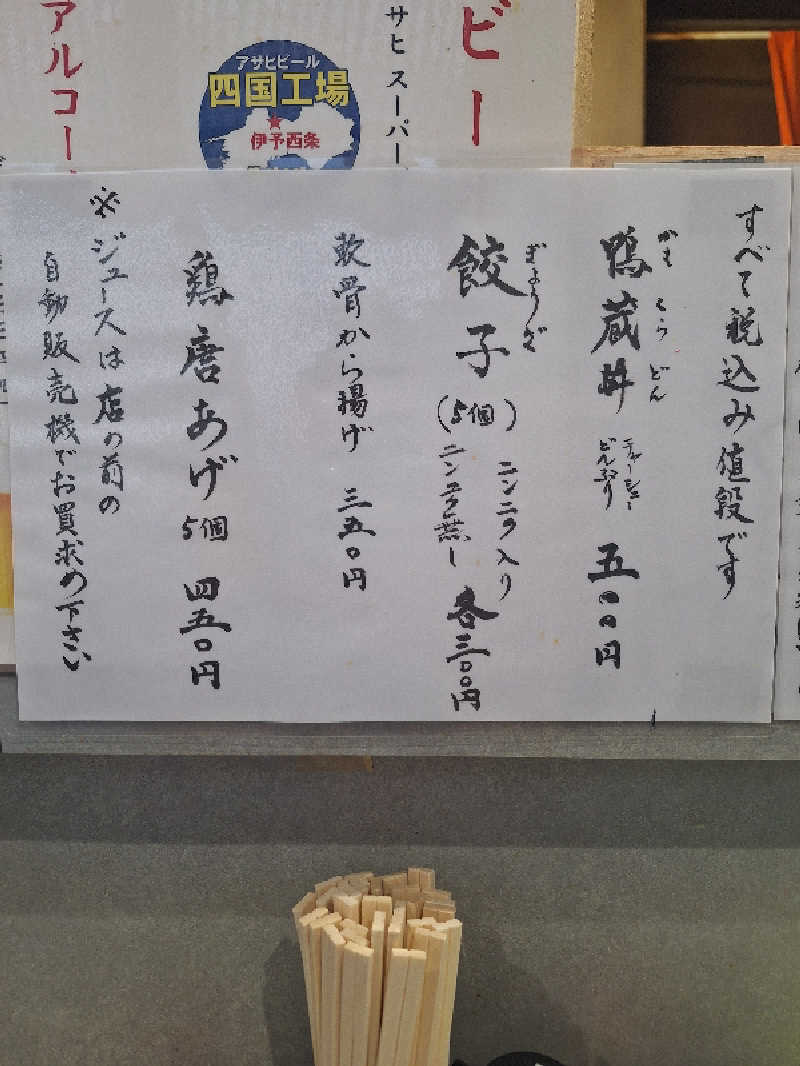 アルコー
アサヒビール
四国工場
伊予西条
サヒ スーパー
ビー
すべて税込み値段です
鴨蔵丼 チャーシューどんぶり 五〇〇円
かも くら どん
餃子(5個) ニンニク入り ニンニク無し 各三〇〇円
ぎょうざ
軟骨から揚げ 三五〇円
鶏唐あげ 5個 四五〇円
※ジュースは店の前の
自動販売機でお買求め下さい